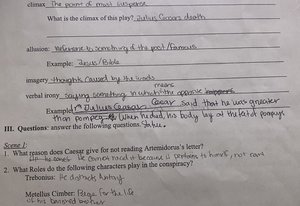 climax The point of most suspense
What is the climax of this play? Julius Caesars death
allusion: reference to something of the past/famous
Example: /Bible
imagery thoughts caused by the words
means
verbal irony saying something in which the opposite happens
Example: Julius Caesar Caesar said that he was greater
than pompey. When he died, his body lay at the feet of pompeys
statue.
III. Questions: answer the following questions.
Scene I:
1. What reason does Caesar give for not reading Artemidorus's letter?
He cannot read it because it pertains to himself, not
2. What Roles do the following characters play in the conspiracy?
Trebonius: He distracts Antony
Metellus Cimber: Begs for the life
of his banished brother